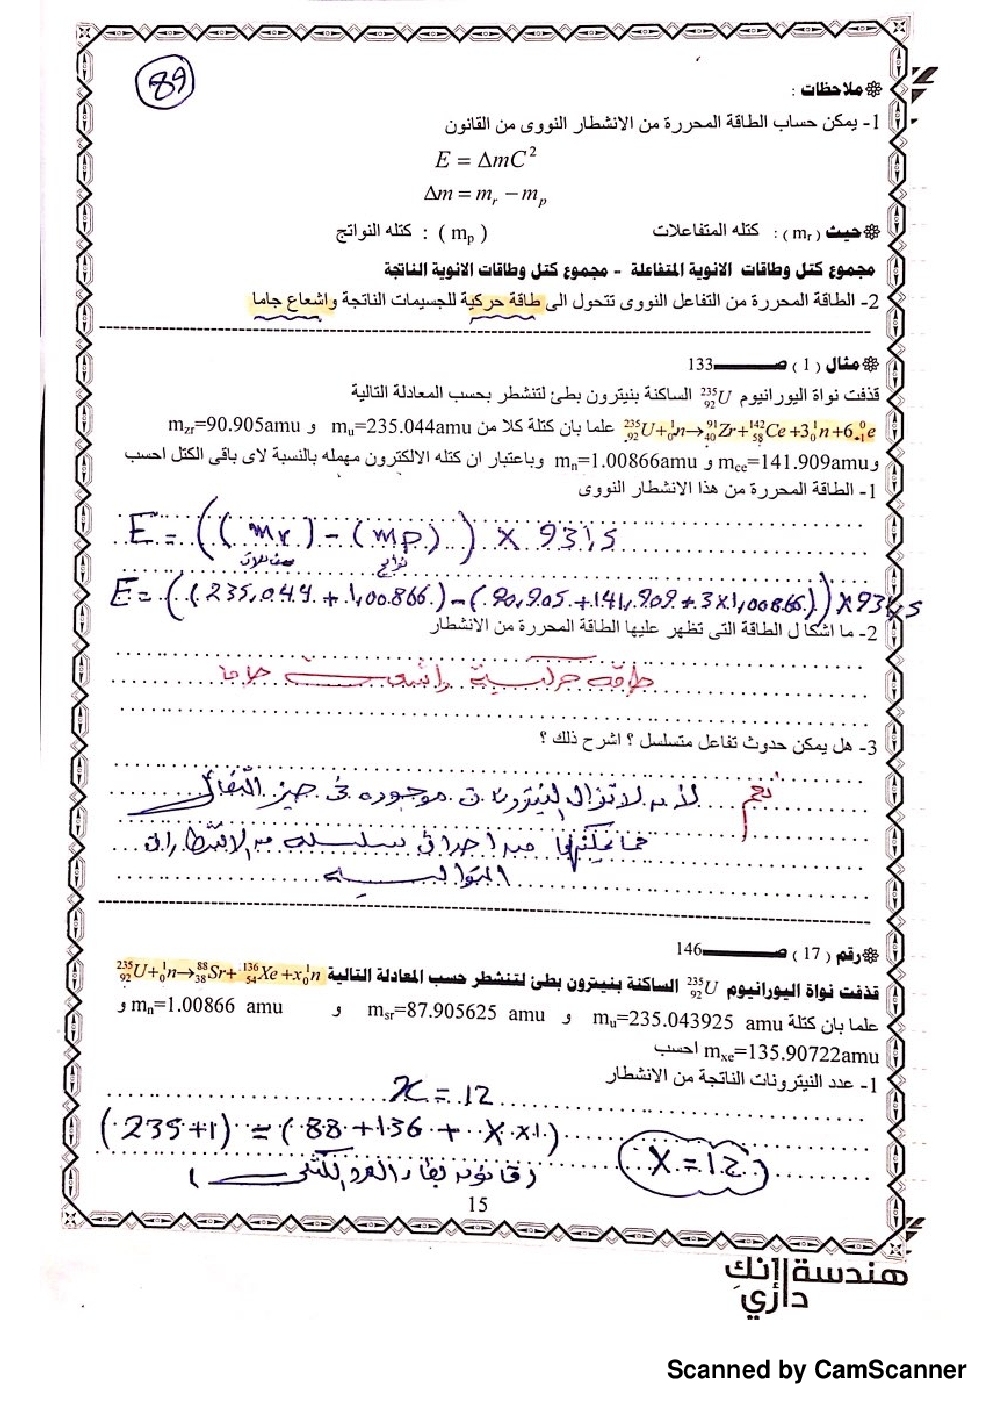 89
ملاحظات :
1- يمكن حساب الطاقة المحررة من الانشطار النووى من القانون
E = ΔmC²
Δm = mᵣ − mₚ
حيث ( mᵣ ) : كتله المتفاعلات ( mₚ ) : كتله النواتج
مجموع كتل وطاقات الانوية المتفاعلة - مجموع كتل وطاقات الانوية الناتجة
2- الطاقة المحررة من التفاعل النووى تتحول الى طاقة حركية للجسيمات الناتجة واشعاع جاما
مثال ( 1 ) صـــــــــ133
قذفت نواة اليورانيوم ²³⁵₉₂U الساكنة بنيترون بطئ لتنشطر بحسب المعادلة التالية
²³⁵₉₂U+¹₀n→⁹¹₄₀Zr+¹⁴²₅₈Ce+3¹₀n+6⁰₋₁e علما بان كتلة كلا من mᵤ=235.044amu و m_zr=90.905amu
و m_ce=141.909amu و mₙ=1.00866amu وباعتبار ان كتله الالكترون مهمله بالنسبة لاى باقي الكتل احسب
1- الطاقة المحررة من هذا الانشطار النووى
E = ((mr) - (mp)) × 931,5
متفاعلات نواتج
E = ((235,044 + 1,00866) - (90,905 + 141,909 + 3×1,00866)) × 931,5
2- ما اشكال الطاقة التى تظهر عليها الطاقة المحررة من الانشطار
طاقة حركية واشعة جاما
3- هل يمكن حدوث تفاعل متسلسل ؟ اشرح ذلك ؟
نعم لأنه لاتزال النيترونات موجوده فى حيز التفاعل
مما يمكنها من احداث سلسله من الانشطارات
المتواليه
رقم ( 17 ) صـــــــــ146
قذفت نواة اليورانيوم ²³⁵₉₂U الساكنة بنيترون بطئ لتنشطر حسب المعادلة التالية ²³⁵₉₂U+¹₀n→⁸⁸₃₈Sr+¹³⁶₅₄Xe+x¹₀n
علما بان كتلة mᵤ=235.043925 amu و m_sr=87.905625 amu و mₙ=1.00866 amu و
m_xe=135.90722amu احسب
1- عدد النيترونات الناتجة من الانشطار
x = 12
(235+1) = (88+136+ x×1)
x = 12
(قانون بقاء العدد الكتلى)
15
هندسة إنك
داري
Scanned by CamScanner